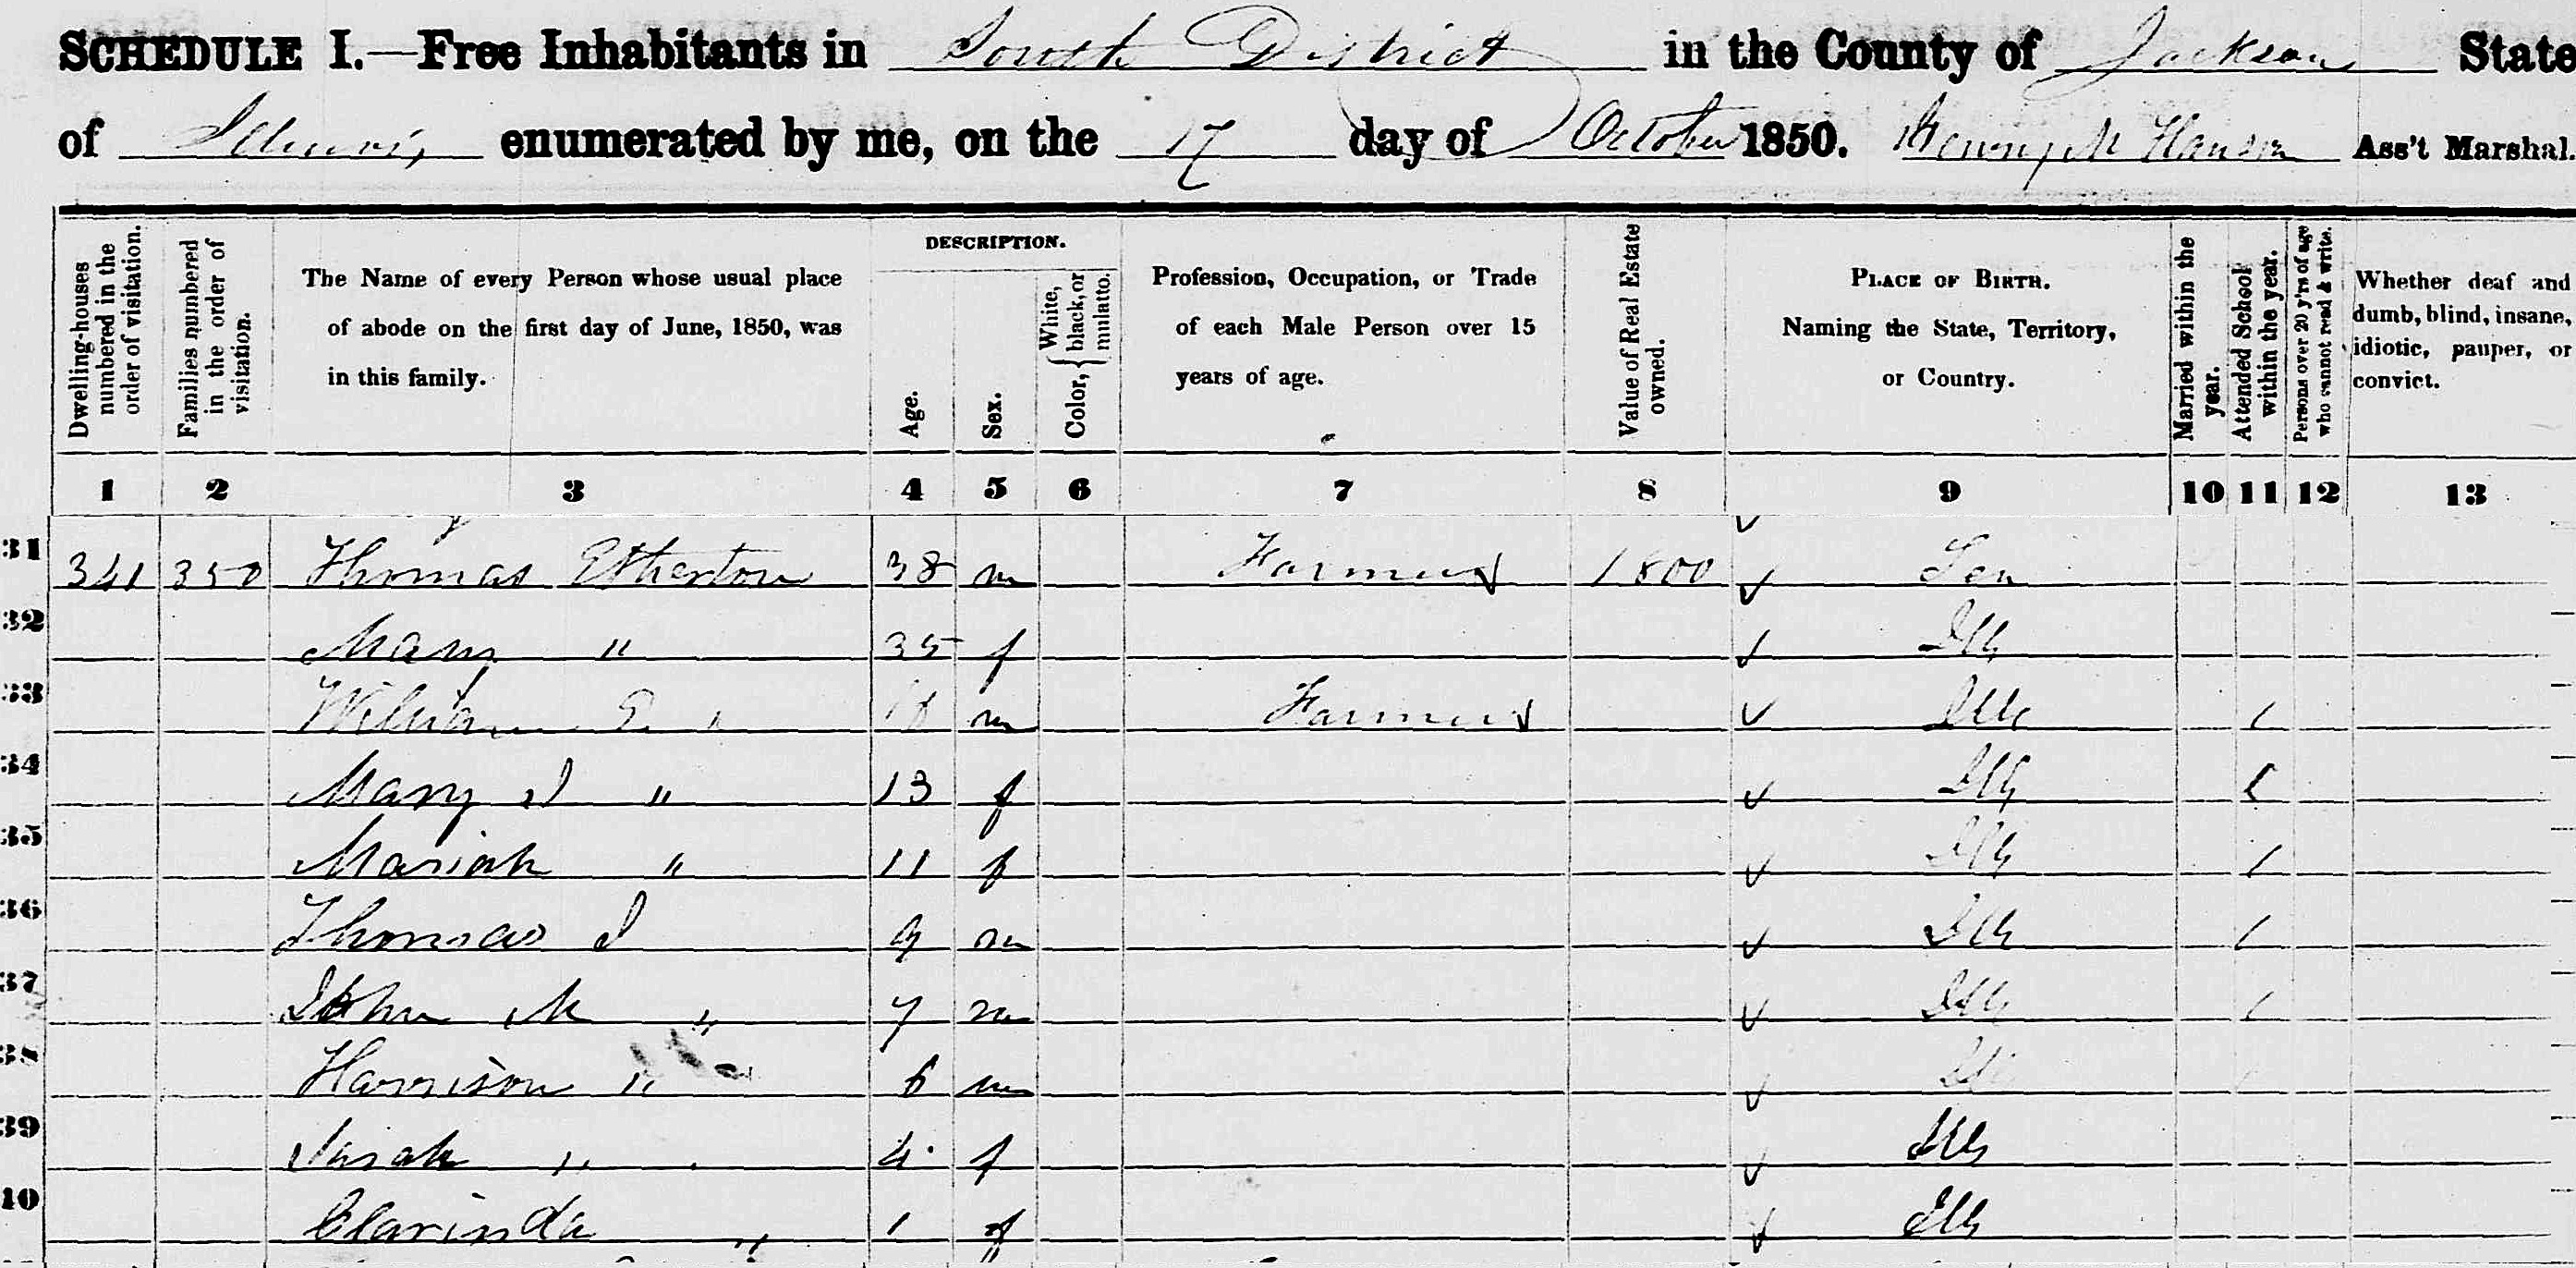 SCHEDULE I.—Free Inhabitants in South District in the County of Jackson State
of Illinois enumerated by me, on the 17 day of October 1850. Henry M Hanson Ass't Marshal.
Dwelling-houses numbered in the order of visitation.
Families numbered in the order of visitation.
The Name of every Person whose usual place
of abode on the first day of June, 1850, was
in this family.
DESCRIPTION.
Age.
Sex.
Color, { White, black, or mulatto.
Profession, Occupation, or Trade
of each Male Person over 15
years of age.
Value of Real Estate owned.
PLACE OF BIRTH.
Naming the State, Territory,
or Country.
Married within the year.
Attended School within the year.
Persons over 20 y'rs of age who cannot read & write.
Whether deaf and
dumb, blind, insane,
idiotic, pauper, or
convict.
1 2 3 4 5 6 7 8 9 10 11 12 13
31 341 350 Thomas Etherton 38 m Farmer 1800 Ten
32 Mary " 35 f Ills
33 William E " m Farmer Ills /
34 Mary J " 13 f Ills /
35 Mariah " 11 f Ills /
36 Thomas J 9 m Ills /
37 John M " 7 m Ills /
38 Harrison " 6 m Ills
39 Sarah " 4 f Ills
40 Clarinda " 1 f Ills